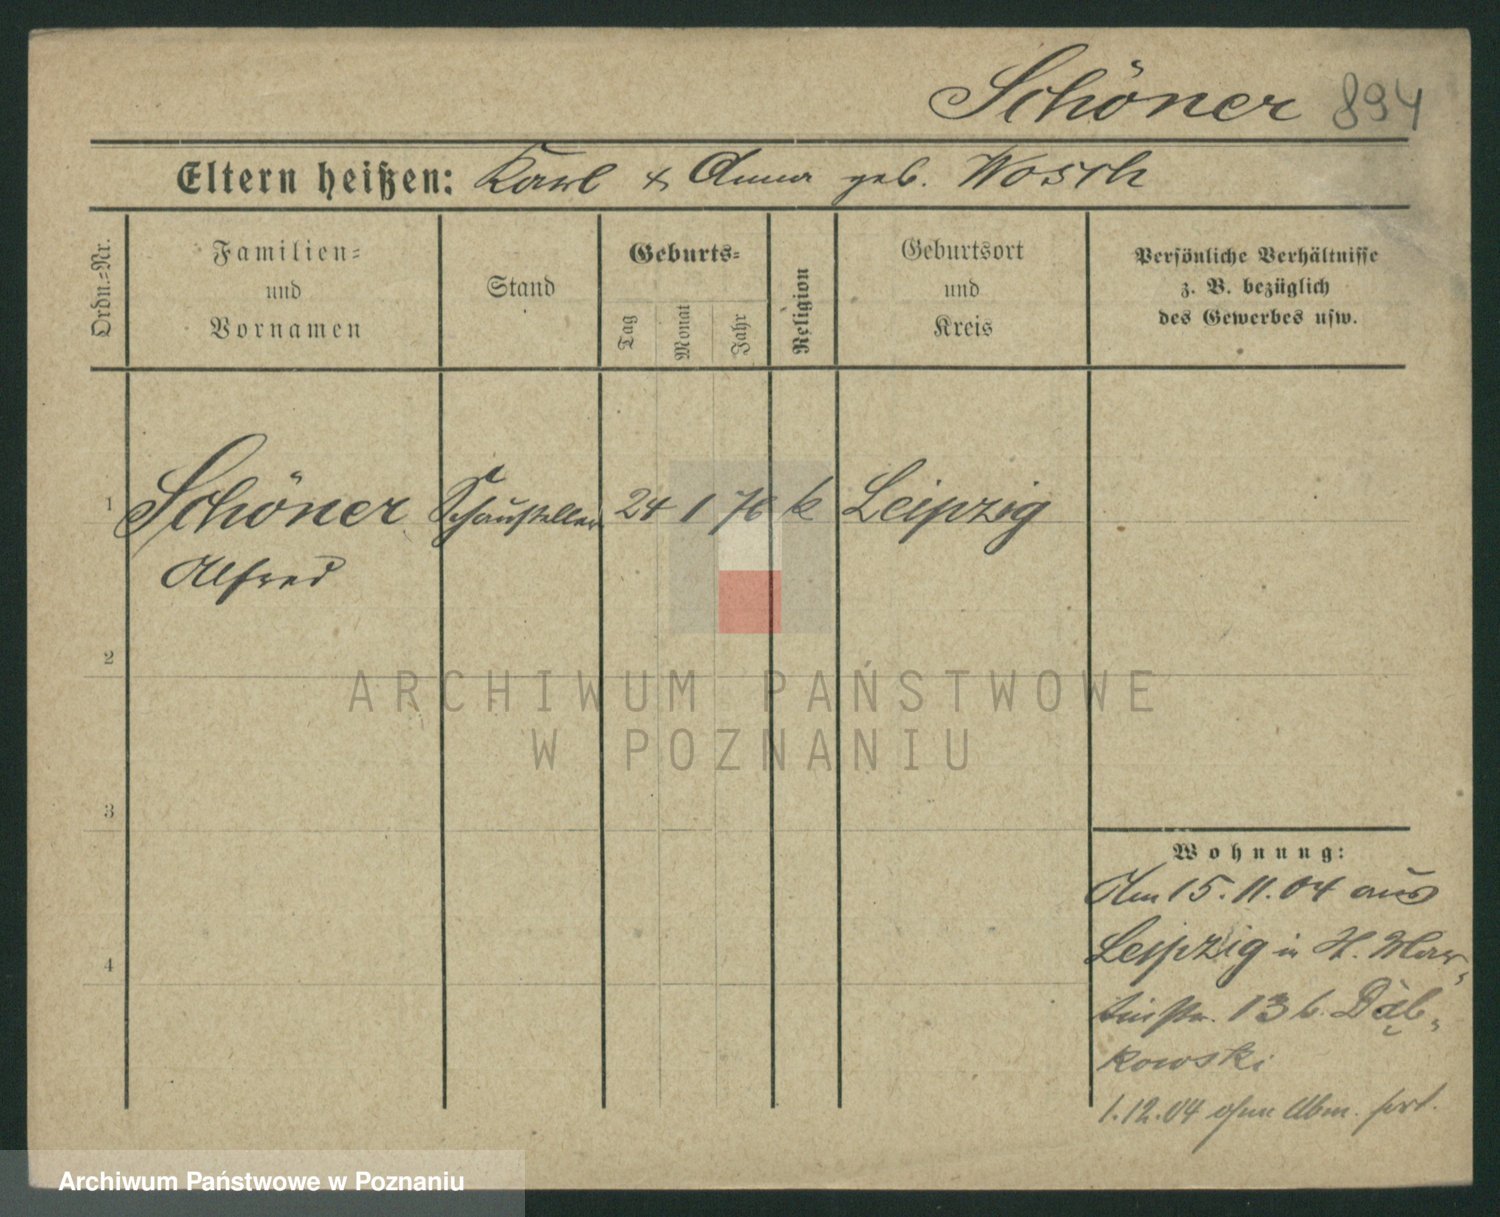 Schöner 894
Eltern heißen: Karl & Anna geb. Wosch
Ordn.=Nr.
Familien=
und
Vornamen
Stand
Geburts=
Tag
Monat
Jahr
Religion
Geburtsort
und
Kreis
Persönliche Verhältnisse
z. B. bezüglich
des Gewerbes usw.
1 Schöner Schausteller 24 1 76 k Leipzig
Alfred
2
3
4
Wohnung:
Am 15.11.04 aus
Leipzig in H. Mar-
tinstr. 13 b. Dąb-
kowski
1.12.04 ohne Abm. fort.
ARCHIWUM PAŃSTWOWE
W POZNANIU
Archiwum Państwowe w Poznaniu